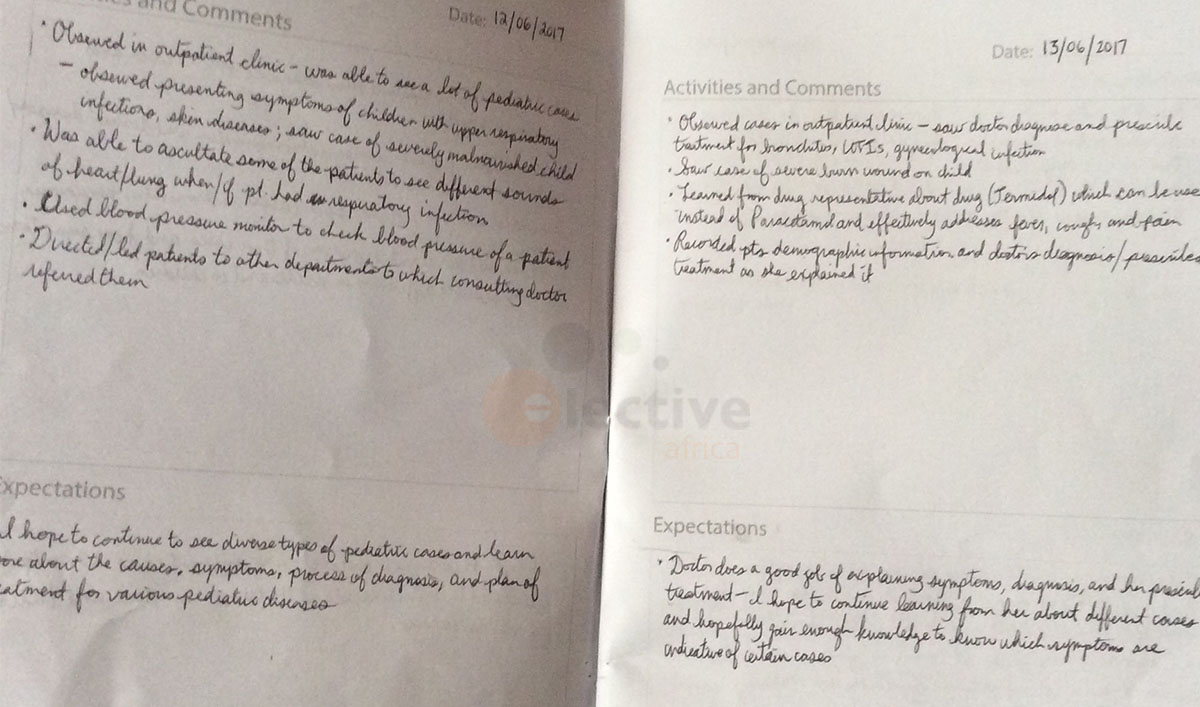 and Comments
Date: 12/06/2017
• Observed in outpatient clinic - was able to see a lot of pediatric cases
- observed presenting symptoms of children with upper respiratory
infections, skin diseases; saw case of severely malnourished child
• Was able to ascultate some of the patients to see different sounds
of heart/lung when/if pt. had respiratory infection
• Used blood pressure monitor to check blood pressure of a patient
• Directed/led patients to other departments to which consulting doctor
referred them
Expectations
I hope to continue to see diverse types of pediatric cases and learn
more about the causes, symptoms, process of diagnosis, and plan of
treatment for various pediatric diseases
Date: 13/06/2017
Activities and Comments
• Observed cases in outpatient clinic - saw doctor diagnose and prescribe
treatment for bronchitis, UTIs, gynecological infection
• Saw case of severe burn wound on child
• Learned from drug representative about drug (Termidol) which can be use
instead of Paracetamol and effectively addresses fever, cough and pain
• Recorded pts demographic information and doctors diagnosis/prescribed
treatment as she explained it
Expectations
• Doctor does a good job of explaining symptoms, diagnosis, and her prescribed
treatment - I hope to continue learning from her about different cases
and hopefully gain enough knowledge to know which symptoms are
indicative of certain cases
elective
africa